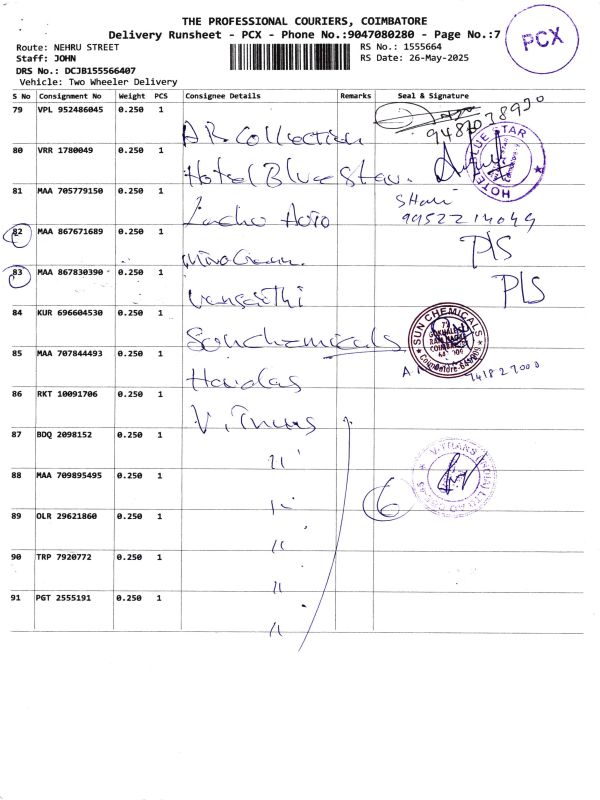 THE PROFESSIONAL COURIERS, COIMBATORE
Delivery Runsheet - PCX - Phone No.:9047080280 - Page No.:7
PCX
Route: NEHRU STREET
RS No.: 1555664
Staff: JOHN
RS Date: 26-May-2025
DRS No.: DCJB155566407
Vehicle: Two Wheeler Delivery
S No Consignment No Weight PCS Consignee Details Remarks Seal & Signature
79 VPL 952486045 0.250 1 AR Collection
80 VRR 1780049 0.250 1 Hotel Blue Star.
HOTEL BLUE STAR
81 MAA 705779150 0.250 1
9952214049
82 MAA 867671689 0.250 1 P/S
83 MAA 867830390 0.250 1 P/S
84 KUR 696604530 0.250 1 Sunchemicals
SUN CHEMICALS
85 MAA 707844493 0.250 1 Haridas
86 RKT 10091706 0.250 1 V. Trans
87 BDQ 2098152 0.250 1 "
88 MAA 709895495 0.250 1 "
6
V-TRANS
89 OLR 29621860 0.250 1 "
90 TRP 7920772 0.250 1 "
91 PGT 2555191 0.250 1 "